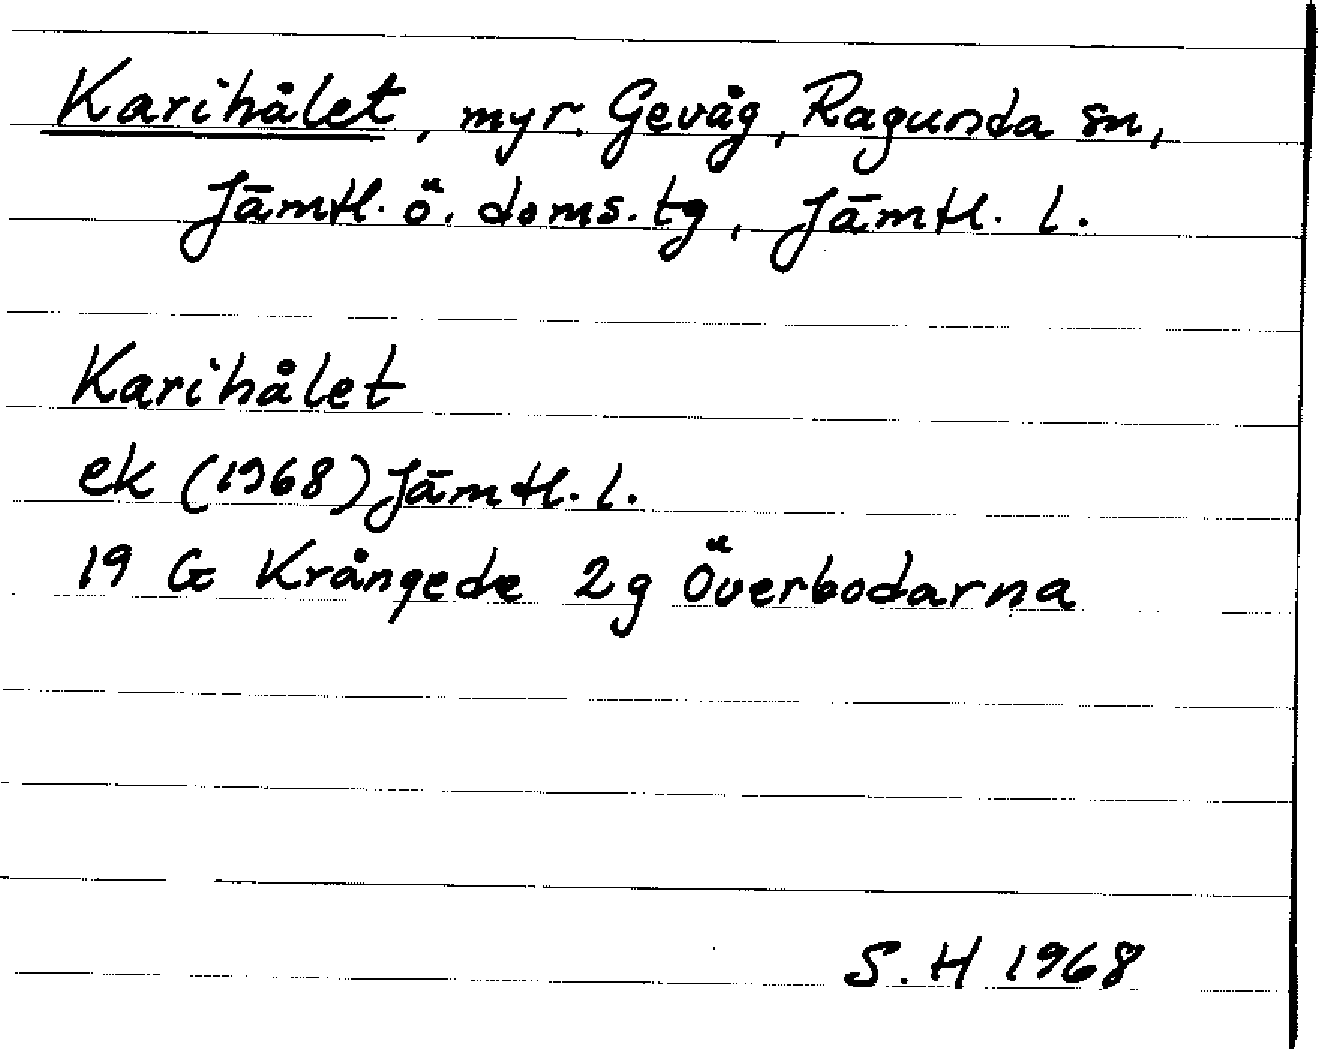 Karihålet, myr. Gevåg, Ragunda sn,
Jämtl. ö. doms.tg, Jämtl. l.
Karihålet
ek (1968) Jämtl. l.
19 G Krångede 2g Överbodarna
S. H 1968